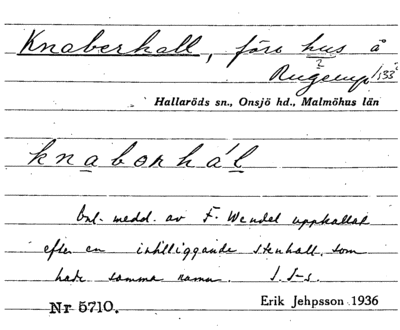 Knaberhall, förr hus å
Rugerup 1/133
Hallaröds sn., Onsjö hd., Malmöhus län
knabərhál
Enl. medd. av F. Wendel uppkallat
efter en intilliggande stenhall, som
hade samma namn. J. S-s.
Nr 5710. Erik Jehpsson 1936